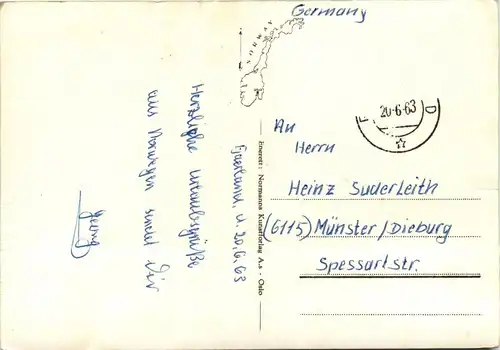 Germany
NORWAY
20-6-63
Fjaerland d. 20.6.63
Herzliche Urlaubsgrüße
aus Norwegen sendet Dir
Georg
Enerett: Normanns Kunstforlag A.s - Oslo
An
Herrn
Heinz Suderleith
(6115) Münster/Dieburg
Spessartstr.